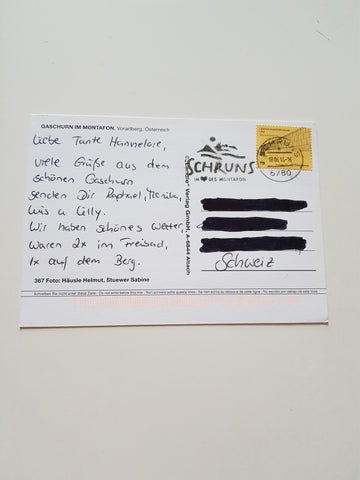 GASCHURN IM MONTAFON, Vorarlberg, Österreich
Liebe Tante Hannelore,
viele Grüße aus dem
schönen Gaschurn
senden Dir Raphael, Monika,
u. Lilly.
Wir haben schönes Wetter,
waren 2x im Freibad,
1x auf dem Berg.
367 Foto: Häusle Helmut, Stuewer Sabine
Verlag GmbH, A-6844 Altach
SCHRUNS
IM DES MONTAFON
6780
Schweiz
Schreiben Sie nicht unter diese Zeile - Do not write below this line - Non scrivere sotto questa linea - Ne rien écrire au-dessous de cette ligne - No escribir por debajo de esta línea